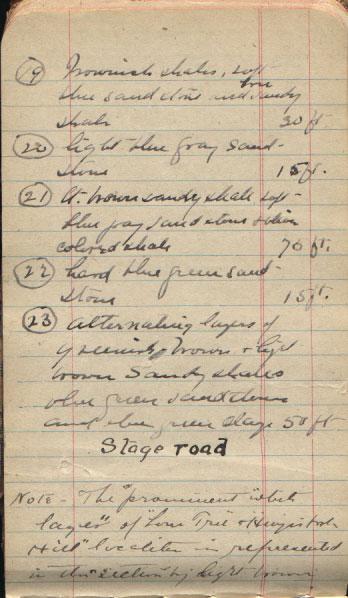 (19) Brownish shales, soft
blue sandstone and brown sandy
shale 30 ft
(20) light blue gray sand-
stone 15 ft.
(21) Lt. brown sandy shale soft-
blue gray sandstone & olive
colored shale 70 ft.
(22) hard blue green sand-
stone 15 ft.
(23) alternating layers of
greenish, brown & light
brown sandy shales
blue green sandstone
and blue green clays 50 ft.
Stage road
Note - The "prominent white
layer" of "Lone Tree &
Hill" localities is represented
in this section by light brown